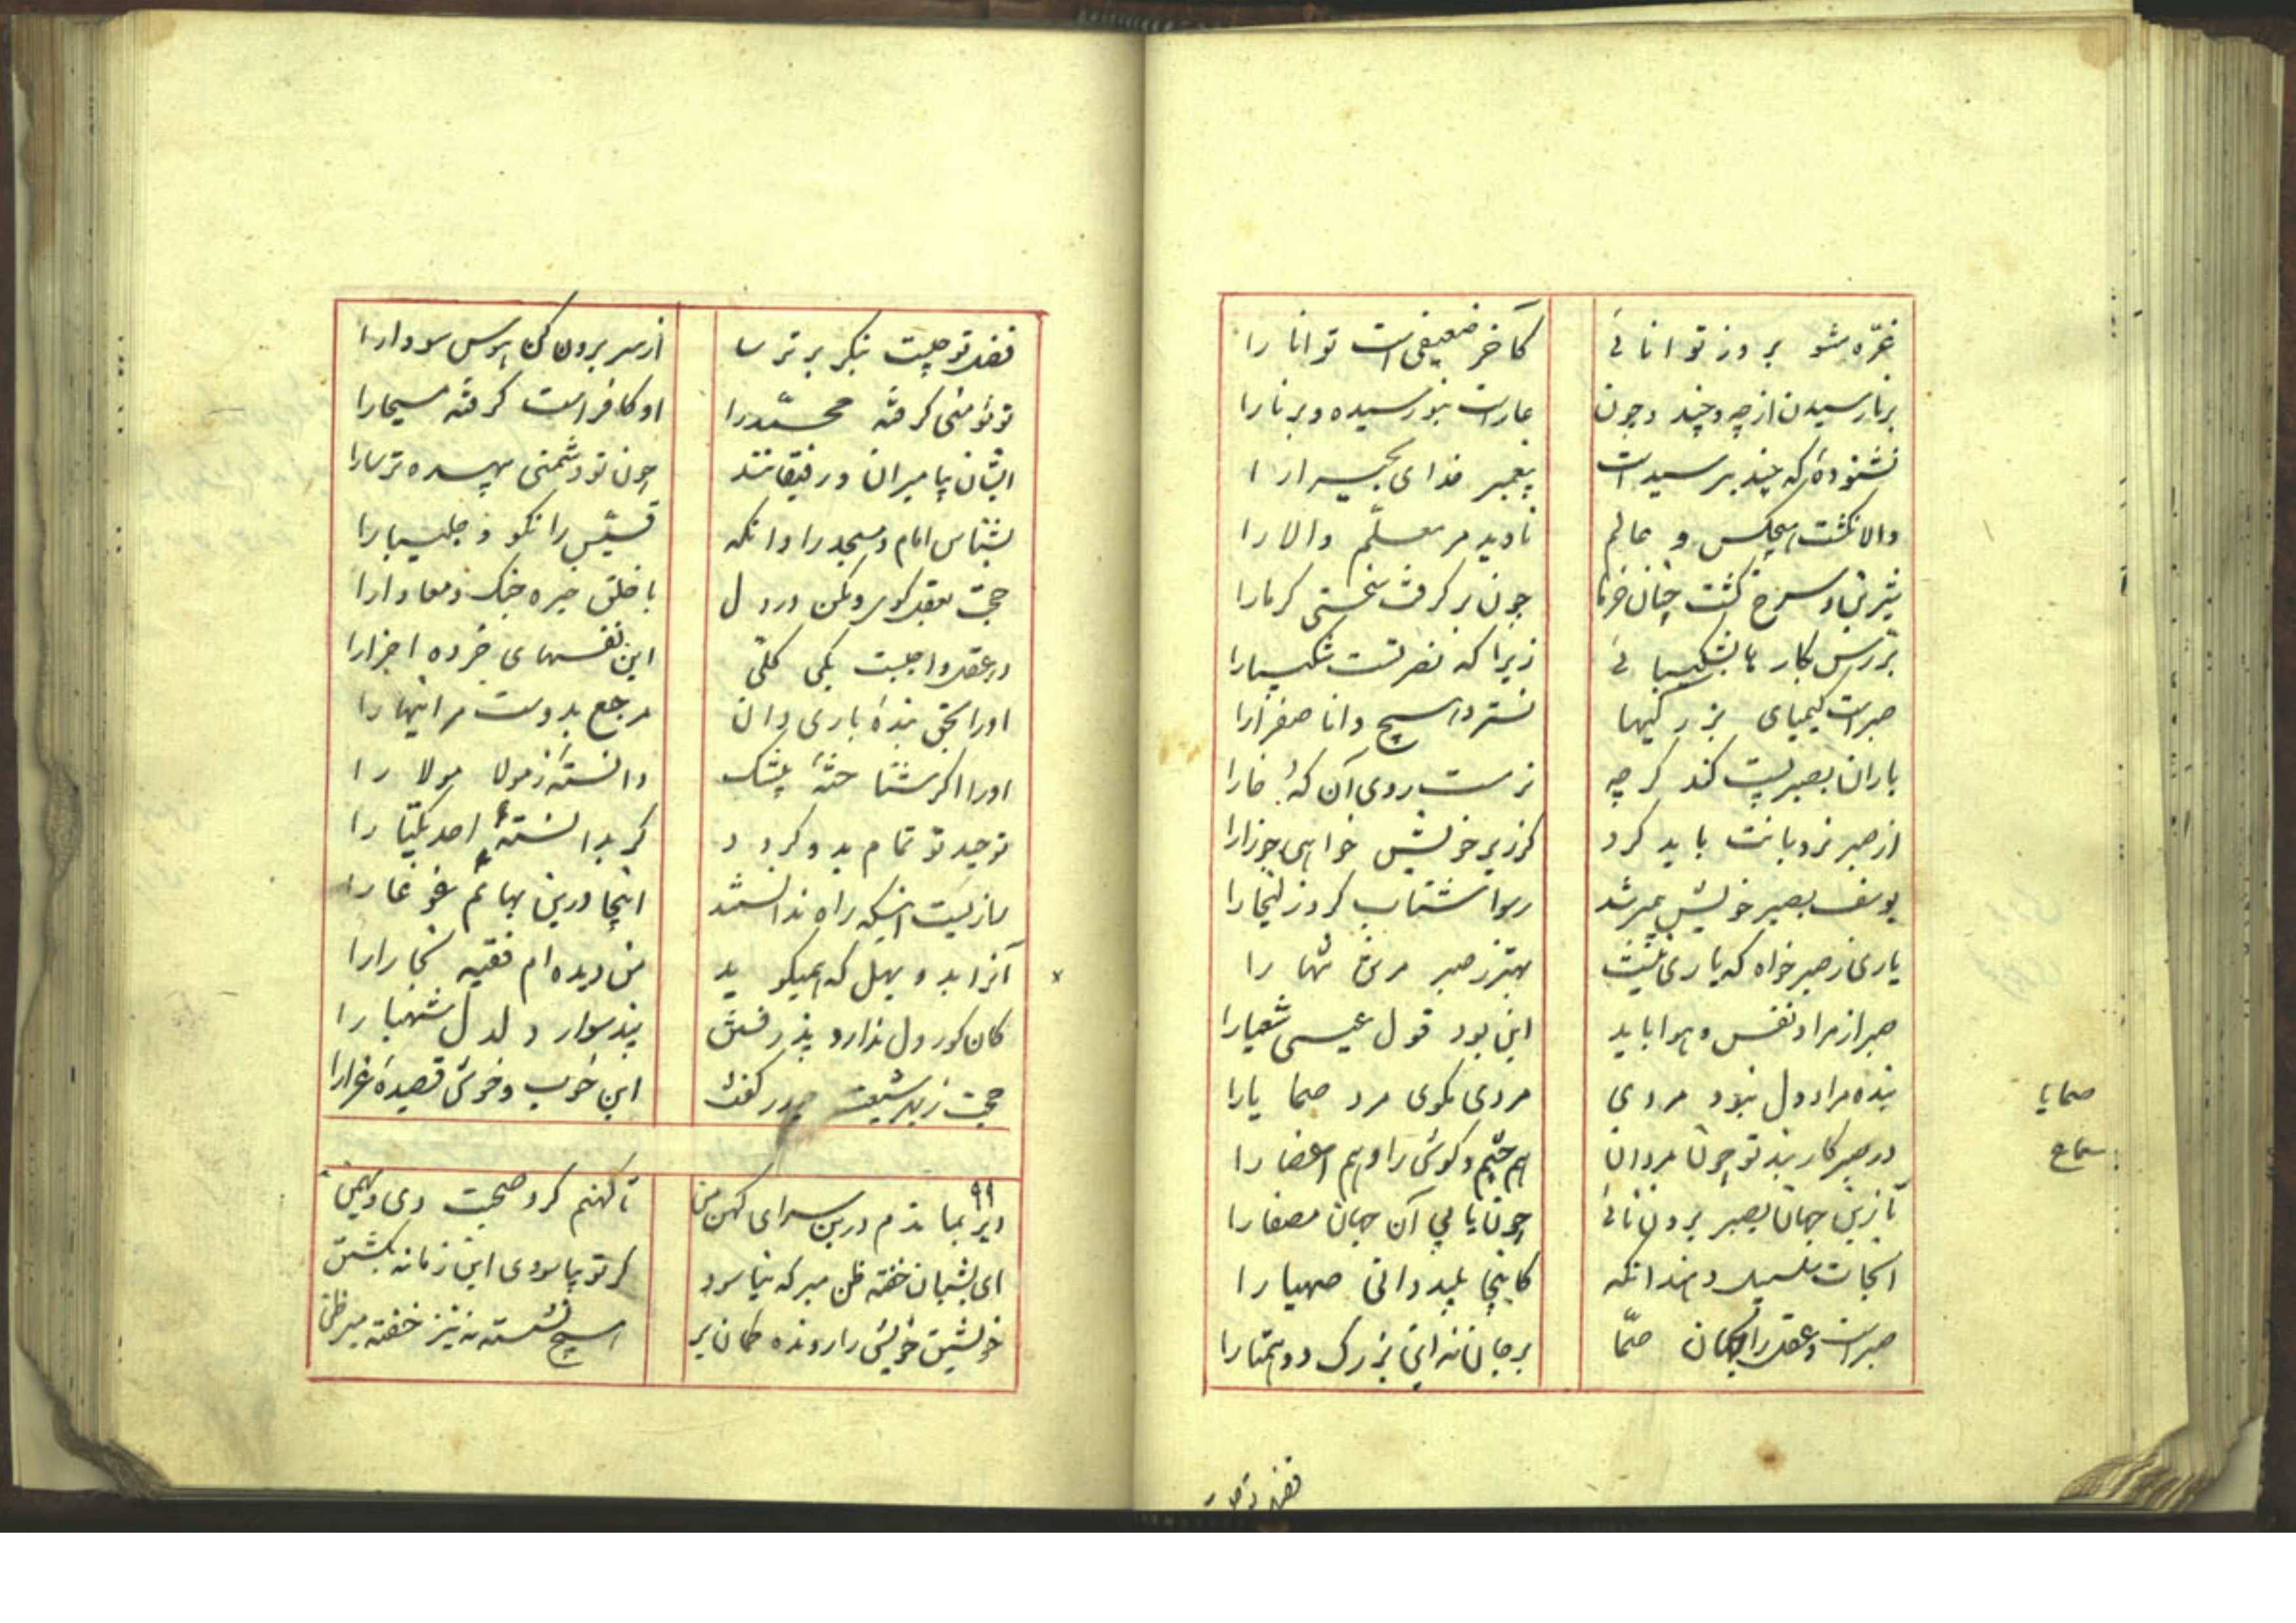 غرّه مشو بروز توانائی کآخر ضعیفی است توانا را
برنا رسیدن از چه و چند و چون عار است نو رسیده و برنا را
نشنودهٔ که چند بپرسیدست پیغمبر خدای بحیرا را
والا نکشت هیچکس و عالم نادیده مر معلّم والا را
شیرین و سرخ کشت چنان خرما چون بر کرفت سختی کرما را
بررس بکارها بشکیبائی زیرا که نصرتست شکیبا را
صبر است کیمیای بزرکیها نستود هیچ دانا صفرا را
باران بصبر پست کند کر چه نرمست روی آن که خارا
از صبر نردبانت باید کرد کر زیر خویش خواهی جوزا را
یوسف بصبر خویش پیمبر شد رسوا شتاب کرد زلیخا را
یاری ز صبر خواه که یاری نیست بهتر ز صبر مر تن تنها را
صبر از مراد نفس و هوا باید این بود قول عیسی شعیا را
بنده مراد دل نبود مردی مردی مکوی مرد صحایا را
صحایا
در صبر کار بند تو چون مردان هم چشم و کوش را و هم اعضا را
سماع
تا زین جهان بصبر برون نائی چون یابی آن جهان مصفا را
آنجات سلسبیل دهند آنکه کاینجا پلید دانی صهبا را
صبر است عقل را بجهان همّتا بر جان نه این بزرک دو همتا را
فضل تو چیست
فضل تو چیست بنکر بر ترسا از سر برون کن هوس سودا را
تو مؤمنی کرفته محمّد را او کافر است کرفته مسیحا را
ایشان پیامبران و رفیقانند چون تو دشمنی بیهده ترسا را
بشناس امام و مسجد را وانکه قسیس را نکوه و چلیپا را
حجت بعقل کوی و مکن در دل با خلق خیره جنک و معادا را
در عقل واجبست یکی کلّی این نفسهای خرده اجزا را
او را بحق بندهٔ باری دان مرجع بدوست مر اینها را
او را اکر شناختهٔ بیشک دانستهٔ ز مولا مولا را
توحید تو تمام بدو کردد کر بدانستهٔ احد یکتا را
راز نیست اینکه راه ندانستند اینجا درین بهائم غوغا را
آنرا بدو بهل که همیکوید من دیده ام فقیه بخارا را
کان کور دل ندارد پذرفتن پند سوار دلدل شهبا را
حجت ز بهر شیعت حیدر کفت این خوب و خوش قصیدهٔ غرا را
۹۹
دیر بماندم درین سرای کهن من تا کهنم کرد صحبت دی و بهمن
ای بشبان خفته ظن مبر که نیاسود کر تو بیاسودی این زمانه بکشتن
خویشتن خویش را رونده کمان بر هیچ نشسته نه نیز خفته مبر ظن